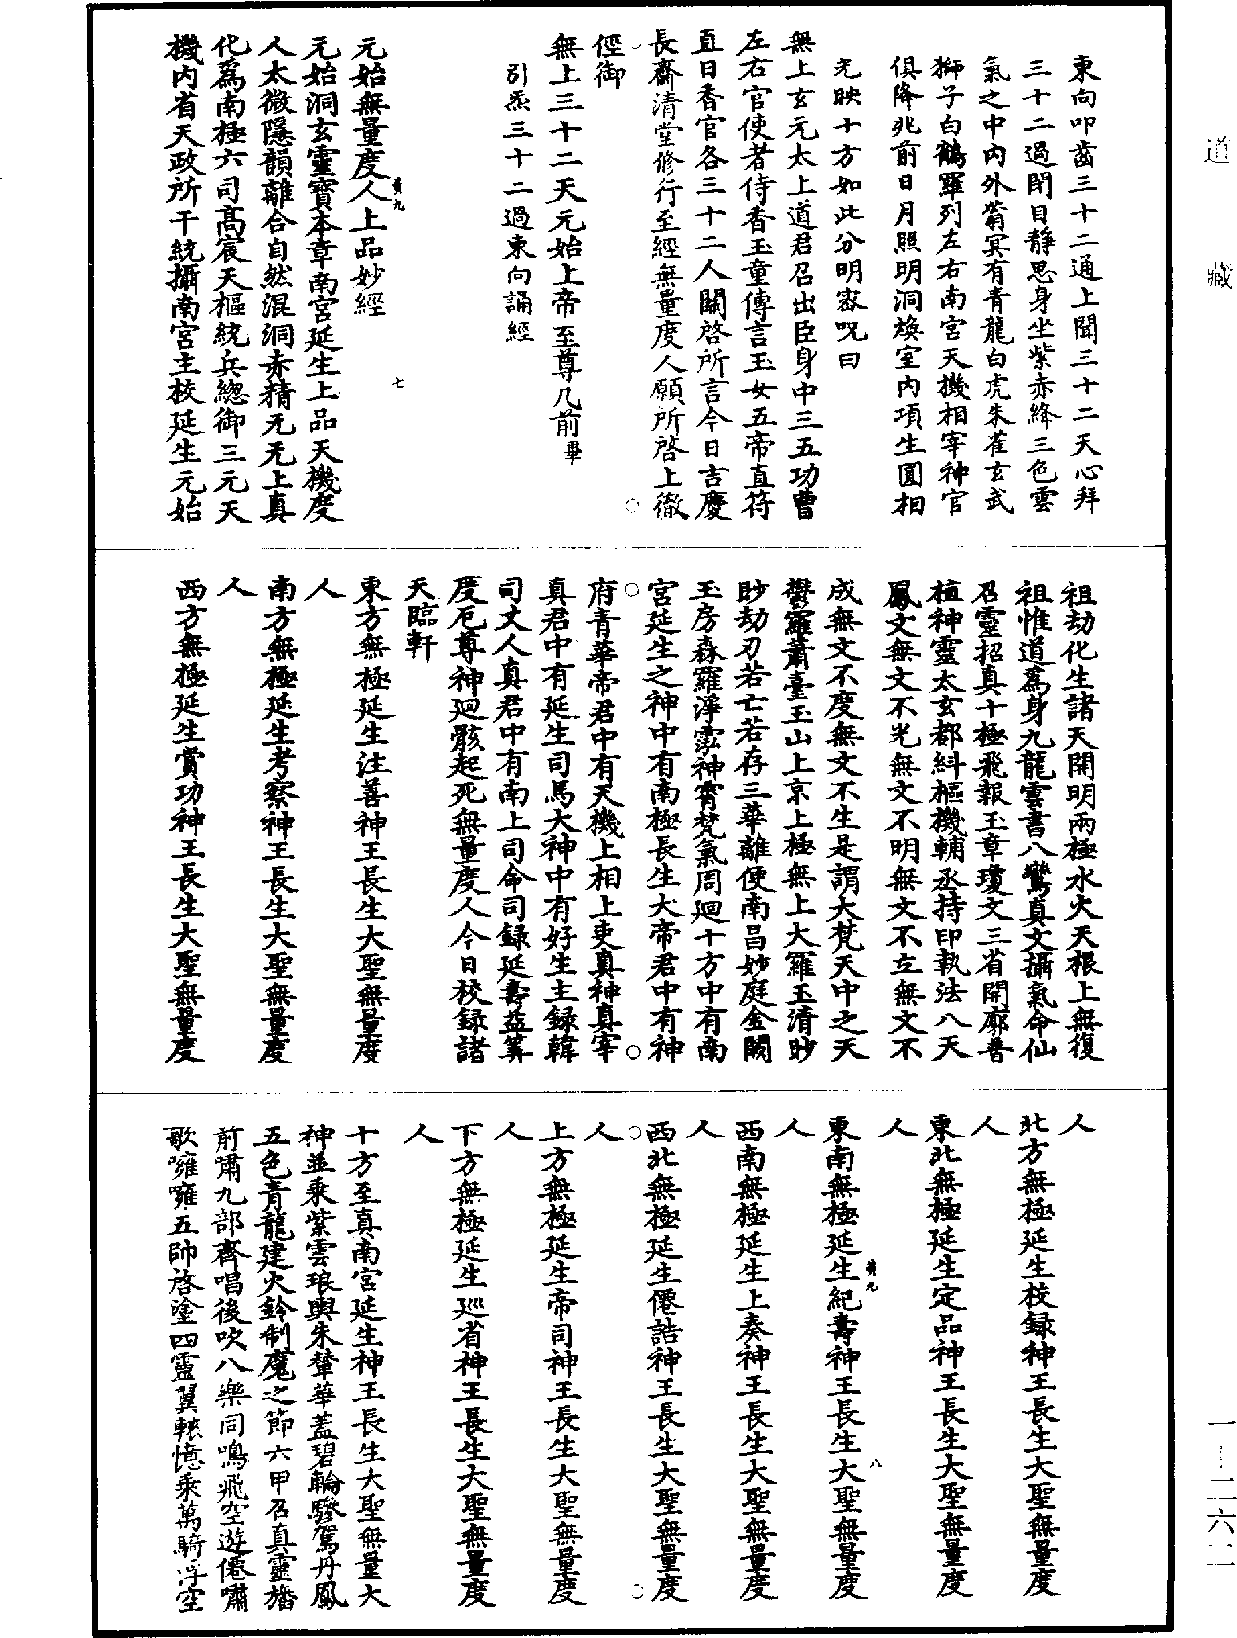 道藏
東向叩齒三十二通上聞三十二天心拜
三十二過閉目靜思身坐紫赤絳三色雲
氣之中內外蓊冥有青龍白虎朱雀玄武
獅子白鶴羅列左右南宮天機相宰神官
俱降兆前日月照明洞煥室內項生圓相
光映十方如此分明密呪曰
無上玄元太上道君召出臣身中三五功曹
左右官使者侍香玉童傳言玉女五帝直符
直日香官各三十二人關啓所言今日吉慶
長齋清堂修行至經無量度人願所啓上徹
徑御
無上三十二天元始上帝至尊几前畢
引炁三十二過東向誦經
黃九
七
元始無量度人上品妙經
元始洞玄靈寶本章南宮延生上品天機度
人太微隱韻離合自然混洞赤精无无上真
化爲南極六司高宸天樞統兵總御三元天
機內省天政所干統攝南宮主校延生元始
祖劫化生諸天開明兩極水火天根上無復
祖惟道爲身九龍雲書八鸞真文攝氣命仙
召靈招真十極飛報玉章瓊文三省開廓普
植神靈太玄都糾樞機輔丞持印執法八天
鳳文無文不光無文不明無文不立無文不
成無文不度無文不生是謂大梵天中之天
鬱羅蕭臺玉山上京上極無上大羅玉清眇
眇劫刃若亡若存三華離便南昌妙庭金闕
玉房森羅淨泓神霄梵氣周廻十方中有南
宮延生之神中有南極長生大帝君中有神
府青華帝君中有天機上相上吏真神真宰
真君中有延生司馬大神中有好生主録韓
司丈人真君中有南上司命司録延壽益筭
度厄尊神廻骸起死無量度人今日校録諸
天臨軒
東方無極延生注善神王長生大聖無量度
人
南方無極延生考察神王長生大聖無量度
人
西方無極延生賞功神王長生大聖無量度
人
北方無極延生校録神王長生大聖無量度
人
東北無極延生定品神王長生大聖無量度
人
黃九
八
東南無極延生紀壽神王長生大聖無量度
人
西南無極延生上奏神王長生大聖無量度
人
西北無極延生僊誥神王長生大聖無量度
人
上方無極延生帝司神王長生大聖無量度
人
下方無極延生巡省神王長生大聖無量度
人
十方至真南宮延生神王長生大聖無量大
神並乘紫雲琅輿朱輦華蓋碧輪驂駕丹鳳
五色青龍建火鈴制魔之節六甲召真靈旛
前嘯九部齊唱後吹八樂同鳴飛空遊僊嘯
歌嗈嗈五帥啓塗四靈翼轅億乘萬騎浮空
一—二六二